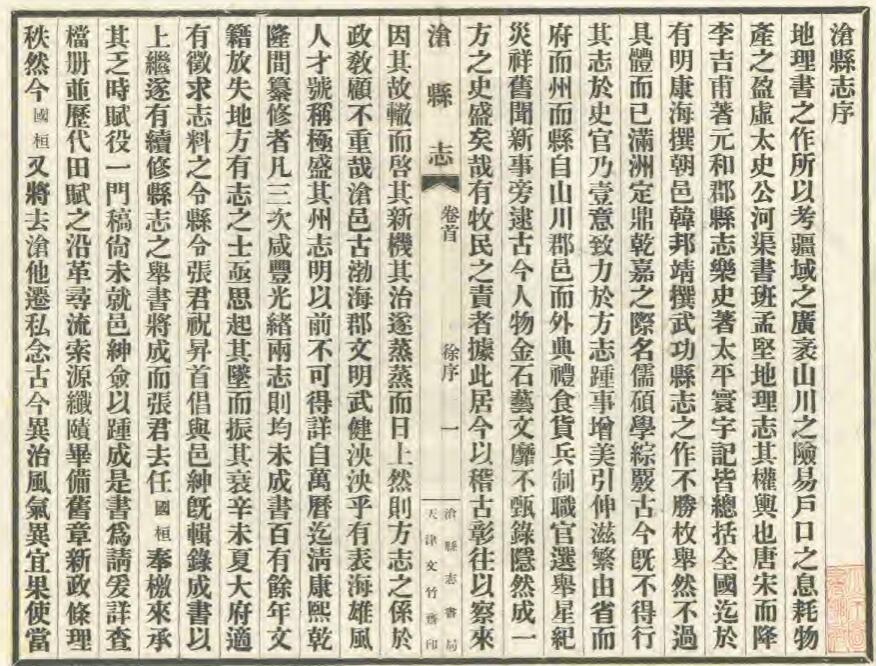 滄縣志序
地理書之作所以考疆域之廣袤山川之險易戶口之息耗物
產之盈虛太史公河渠書班孟堅地理志其權輿也唐宋而降
李吉甫著元和郡縣志樂史著太平寰宇記皆總括全國迄於
有明康海撰朝邑韓邦靖撰武功縣志之作不勝枚舉然不過
具體而已滿洲定鼎乾嘉之際名儒碩學綜覈古今既不得行
其志於史官乃壹意致力於方志踵事增美引伸滋繁由省而
府而州而縣自山川郡邑而外典禮食貨兵制職官選舉星紀
災祥舊聞新事旁逮古今人物金石藝文靡不甄錄隱然成一
方之史盛矣哉有牧民之責者據此居今以稽古彰往以察來
滄縣志 卷首 徐序 一 滄縣志書局
天津文竹齋印
因其故轍而啓其新機其治遂蒸蒸而日上然則方志之係於
政敎顧不重哉滄邑古渤海郡文明武健泱泱乎有表海雄風
人才號稱極盛其州志明以前不可得詳自萬曆迄淸康熙乾
隆間纂修者凡三次咸豐光緒兩志則均未成書百有餘年文
籍放失地方有志之士亟思起其墜而振其衰辛未夏大府適
有徵求志料之令縣令張君祝昇首倡與邑紳既輯錄成書以
上繼遂有續修縣志之舉書將成而張君去任國桓奉檄來承
其乏時賦役一門稿尙未就邑紳僉以踵成是書爲請爰詳查
檔册並歷代田賦之沿革尋流索源纖賾畢備舊章新政條理
秩然今國桓又將去滄他遷私念古今異治風氣異宜果使當